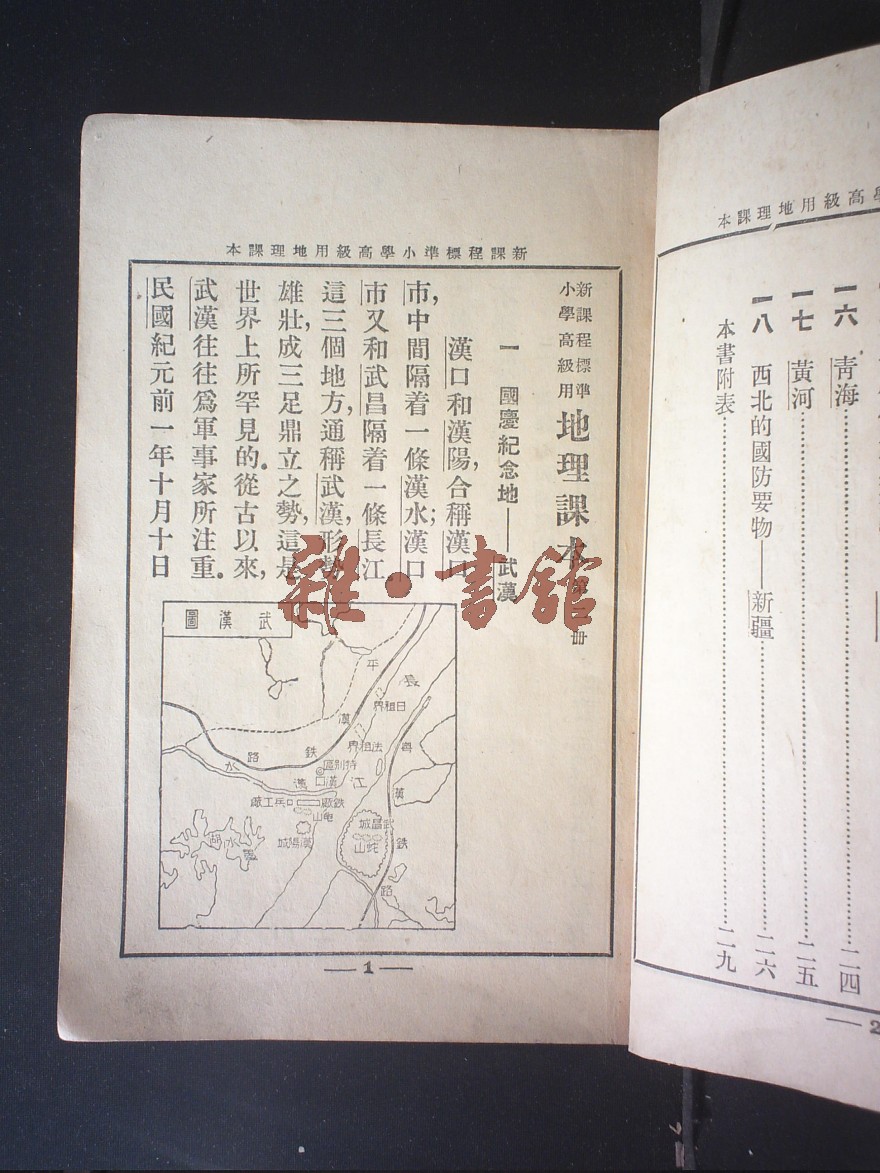 本課理地用級高學小準標程課新
新課程標準
小學高級用
地理課本
第 冊
一 國慶紀念地——武漢
漢口和漢陽，合稱漢口
市，中間隔着一條漢水；漢口
市又和武昌隔着一條長江。
這三個地方，通稱武漢，形勢
雄壯，成三足鼎立之勢，這是
世界上所罕見的。從古以來，
武漢往往爲軍事家所注重。
民國紀元前一年十月十日
圖漢武
平
漢
鐵
路
長
江
界租日
界租法
區別特
漢口
漢
水
廠工兵
廠鐵
龜山
城陽漢
城昌武
山蛇
粵
漢
鐵
路
湖
水
墨
— 1 —
雜·書館
本課理地用級高
一六 青海 二四
一七 黃河 二五
一八 西北的國防要物——新疆 二六
本書附表 二九
— 2